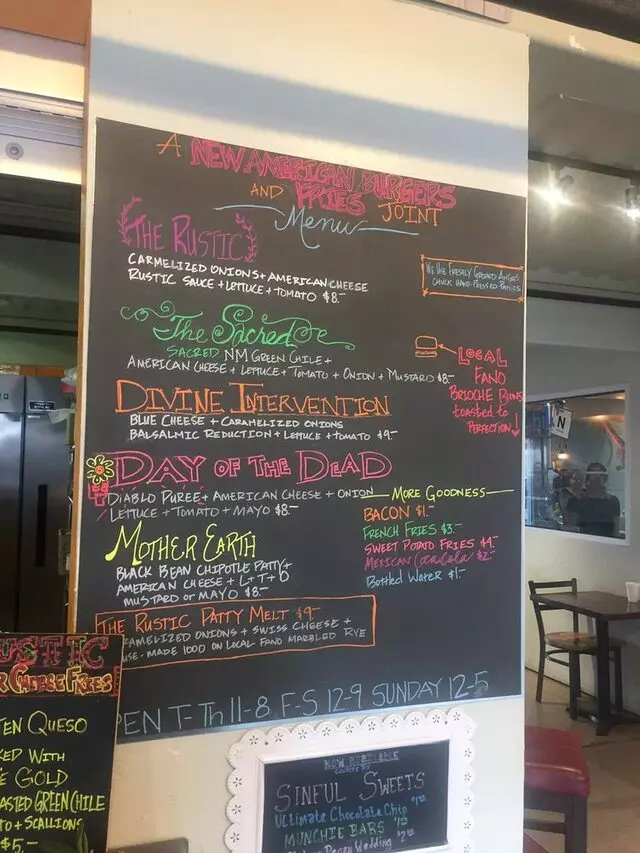 A NEW AMERICAN BURGERS
AND FRIES JOINT
Menu
THE RUSTIC
CARMELIZED ONIONS + AMERICAN CHEESE
RUSTIC SAUCE + LETTUCE + TOMATO $8.-
WE USE FRESHLY GROUND ANGUS
CHUCK HAND-PRESSED PATTIES
The Sacred
SACRED NM GREEN CHILE +
AMERICAN CHEESE + LETTUCE + TOMATO + ONION + MUSTARD $8.-
LOCAL
FANO
BRIOCHE BUNS
toasted to
PERFECTION
DIVINE INTERVENTION
BLUE CHEESE + CARAMELIZED ONIONS
BALSALMIC REDUCTION + LETTUCE + TOMATO $9.-
DAY OF THE DEAD
DIABLO PUREE + AMERICAN CHEESE + ONION
LETTUCE + TOMATO + MAYO $8.-
MORE GOODNESS
BACON $1.-
FRENCH FRIES $3.-
SWEET POTATO FRIES $4.-
MEXICAN Coca-Cola $2.-
Bottled WATER $1.-
MOTHER EARTH
BLACK BEAN CHIPOTLE PATTY +
AMERICAN CHEESE + L + T + O
MUSTARD OR MAYO $8.-
THE RUSTIC PATTY MELT $9.-
CARAMELIZED ONIONS + SWISS CHEESE +
USE-MADE 1000 ON LOCAL FANO MARBLED RYE
PEN T-Th 11-8 F-S 12-9 SUNDAY 12-5
USTIC
R CHEESE FRIES
TEN QUESO
KED WITH
E GOLD
ASTED GREEN CHILE
TO + SCALLIONS
$5.-
NOW AVAILABLE
SINFUL SWEETS
Ultimate Chocolate Chip
MUNCHIE BARS
Pecan Wedding
N